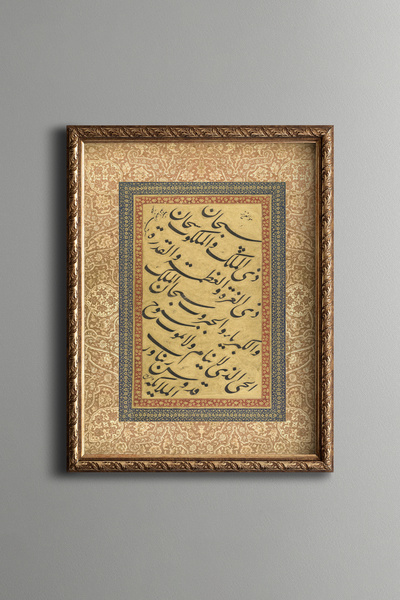 سبحان
ذی الملک والملکوت سبحان
ذی العزة والعظمة والقدرة
والکبریاء والجبروت سبحان الملک
الحی الذی لا ینام ولا یموت سبوح
قدوس ربنا ورب
الملائکة